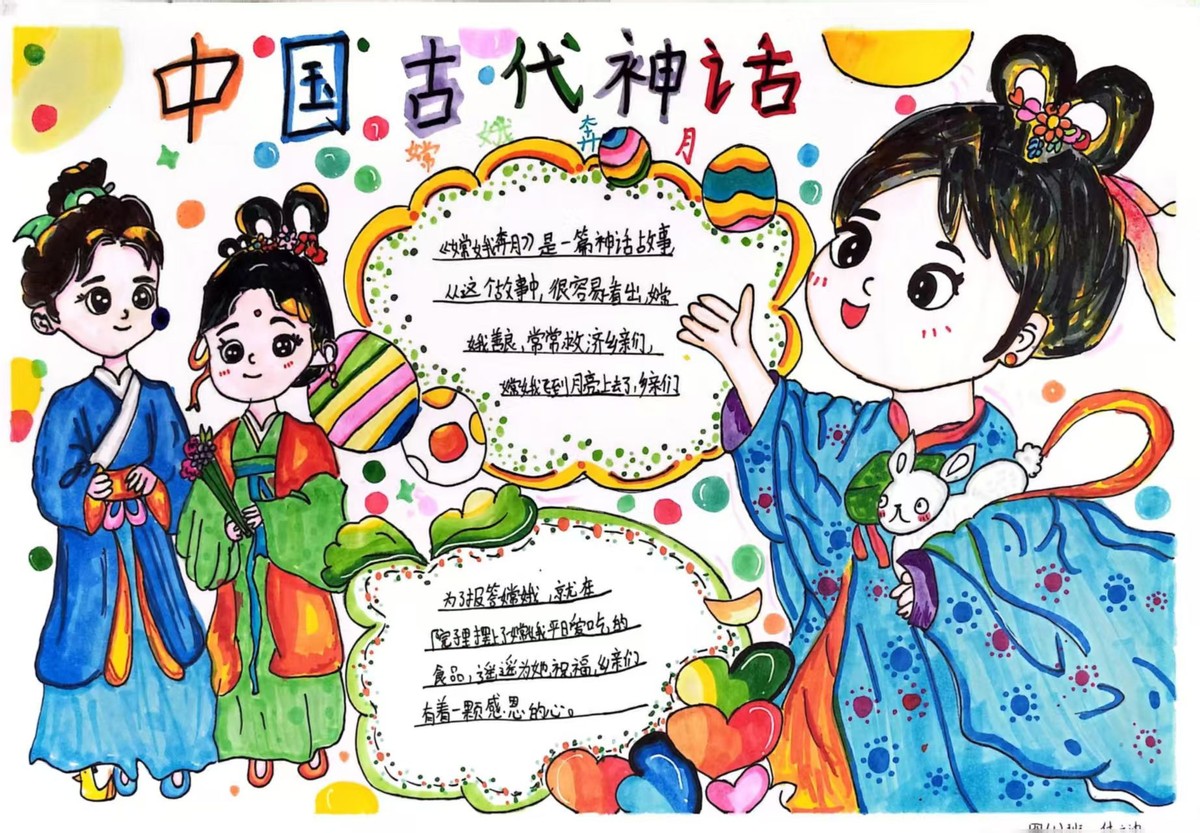 中国古代神话
嫦娥奔月
《嫦娥奔月》是一篇神话故事
从这个故事中,很容易看出,嫦
娥善良,常常救济乡亲们,
嫦娥飞到月亮上去了,乡亲们
为了报答嫦娥,就在
院子里摆上了嫦娥平日爱吃的
食品,遥遥为她祝福,乡亲们
有着一颗感恩的心。